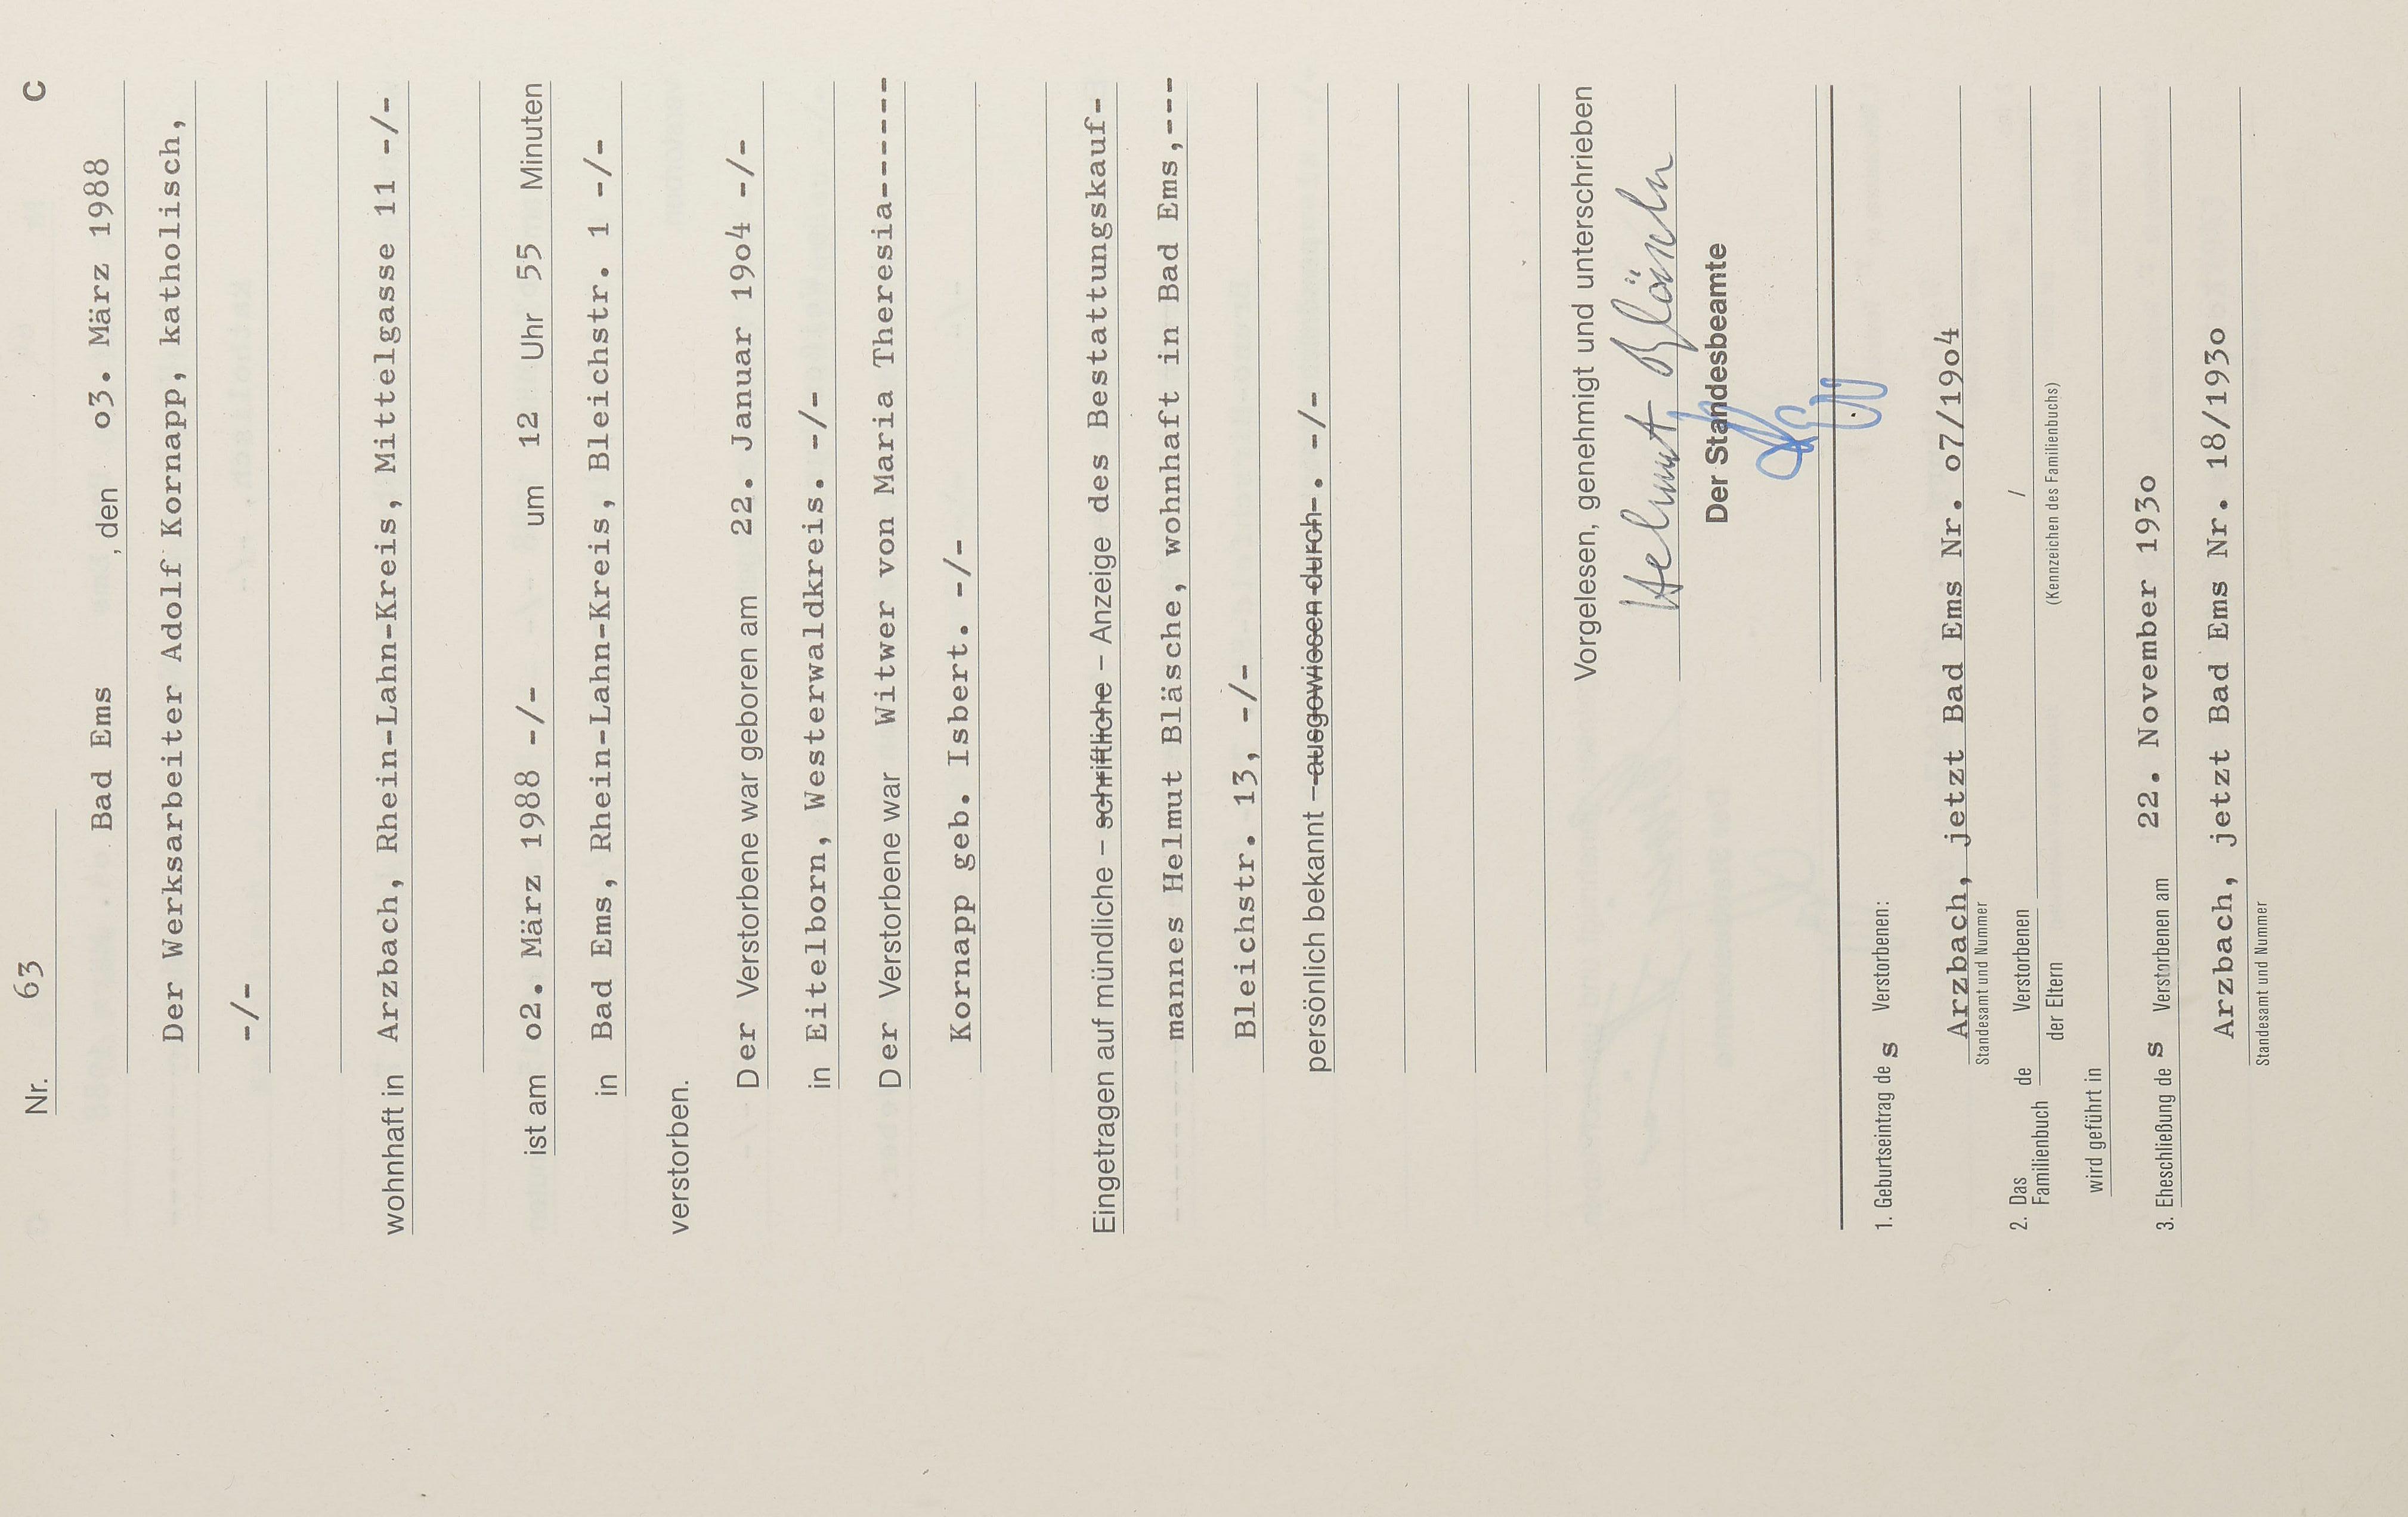 Nr. 63 C
Bad Ems , den o3. März 1988
Der Werksarbeiter Adolf Kornapp, katholisch,
-/-
wohnhaft in Arzbach, Rhein-Lahn-Kreis, Mittelgasse 11 -/-
ist am o2. März 1988 -/- um 12 Uhr 55 Minuten
in Bad Ems, Rhein-Lahn-Kreis, Bleichstr. 1 -/-
verstorben.
Der Verstorbene war geboren am 22. Januar 19o4 -/-
in Eitelborn, Westerwaldkreis. -/-
Der Verstorbene war Witwer von Maria Theresia-------
Kornapp geb. Isbert. -/-
Eingetragen auf mündliche – schriftliche – Anzeige des Bestattungskauf-
mannes Helmut Bläsche, wohnhaft in Bad Ems,---
Bleichstr. 13, -/-
persönlich bekannt – ausgewiesen durch – . -/-
Vorgelesen, genehmigt und unterschrieben
Helmut Bläsche
Der Standesbeamte
1. Geburtseintrag des Verstorbenen:
Arzbach, jetzt Bad Ems Nr. o7/19o4
Standesamt und Nummer
2. Das Familienbuch de Verstorbenen /
der Eltern
(Kennzeichen des Familienbuchs)
wird geführt in
3. Eheschließung des Verstorbenen am 22. November 193o
Arzbach, jetzt Bad Ems Nr. 18/193o
Standesamt und Nummer